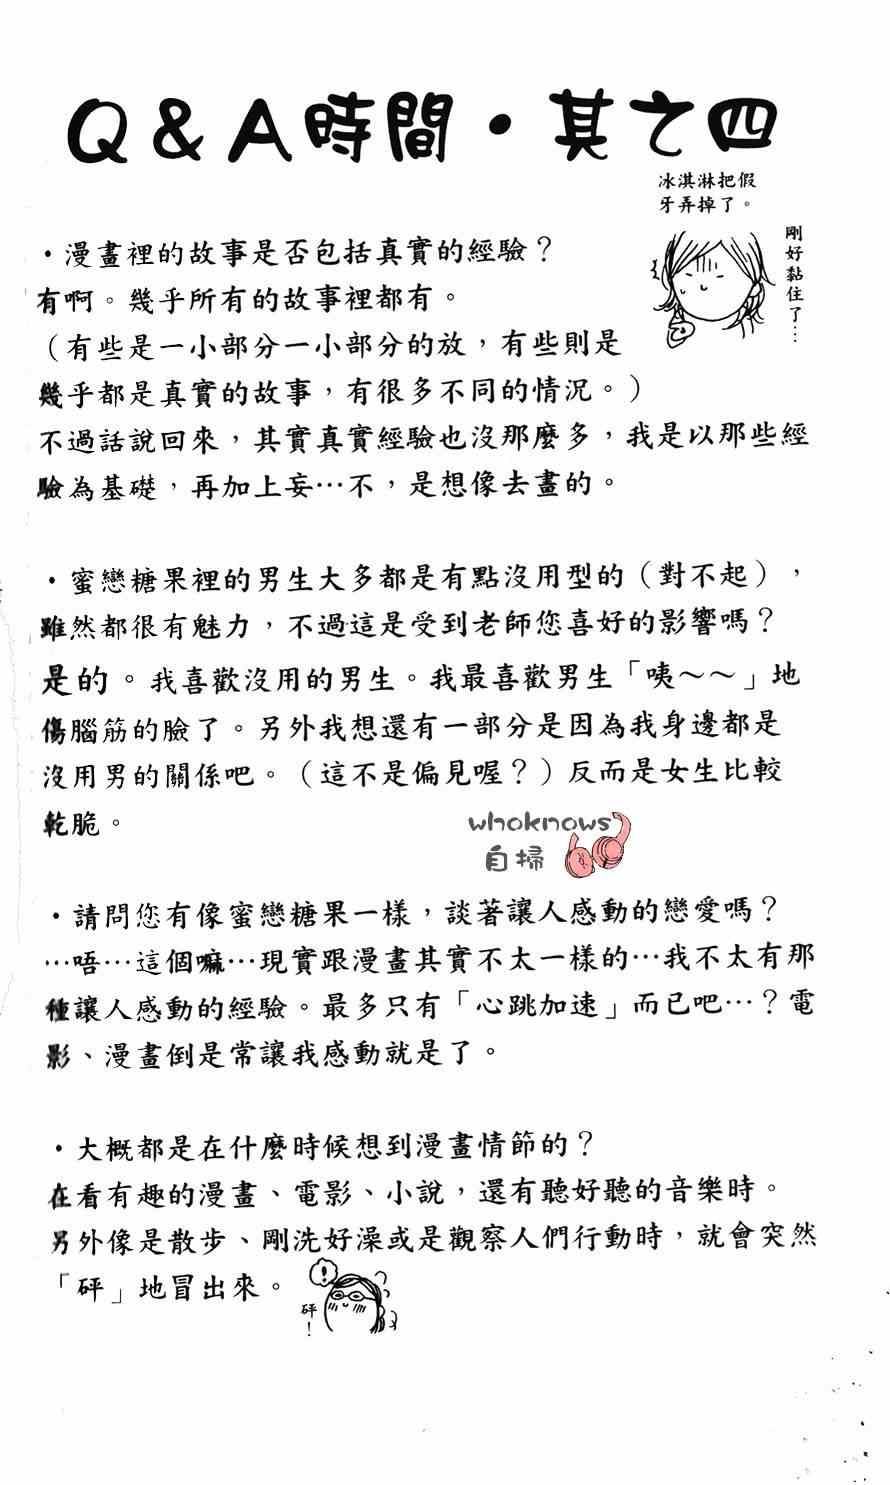 Q&A時間・其之四
冰淇淋把假
牙弄掉了。
剛好黏住了…
・漫畫裡的故事是否包括真實的經驗？
有啊。幾乎所有的故事裡都有。
（有些是一小部分一小部分的放，有些則是
幾乎都是真實的故事，有很多不同的情況。）
不過話說回來，其實真實經驗也沒那麼多，我是以那些經
驗為基礎，再加上妄…不，是想像去畫的。
・蜜戀糖果裡的男生大多都是有點沒用型的（對不起），
雖然都很有魅力，不過這是受到老師您喜好的影響嗎？
是的。我喜歡沒用的男生。我最喜歡男生「咦～～」地
傷腦筋的臉了。另外我想還有一部分是因為我身邊都是
沒用男的關係吧。（這不是偏見喔？）反而是女生比較
乾脆。
whoknows
自掃
・請問您有像蜜戀糖果一樣，談著讓人感動的戀愛嗎？
…唔…這個嘛…現實跟漫畫其實不太一樣的…我不太有那
種讓人感動的經驗。最多只有「心跳加速」而已吧…？電
影、漫畫倒是常讓我感動就是了。
・大概都是在什麼時候想到漫畫情節的？
在看有趣的漫畫、電影、小說，還有聽好聽的音樂時。
另外像是散步、剛洗好澡或是觀察人們行動時，就會突然
「砰」地冒出來。
!
砰！